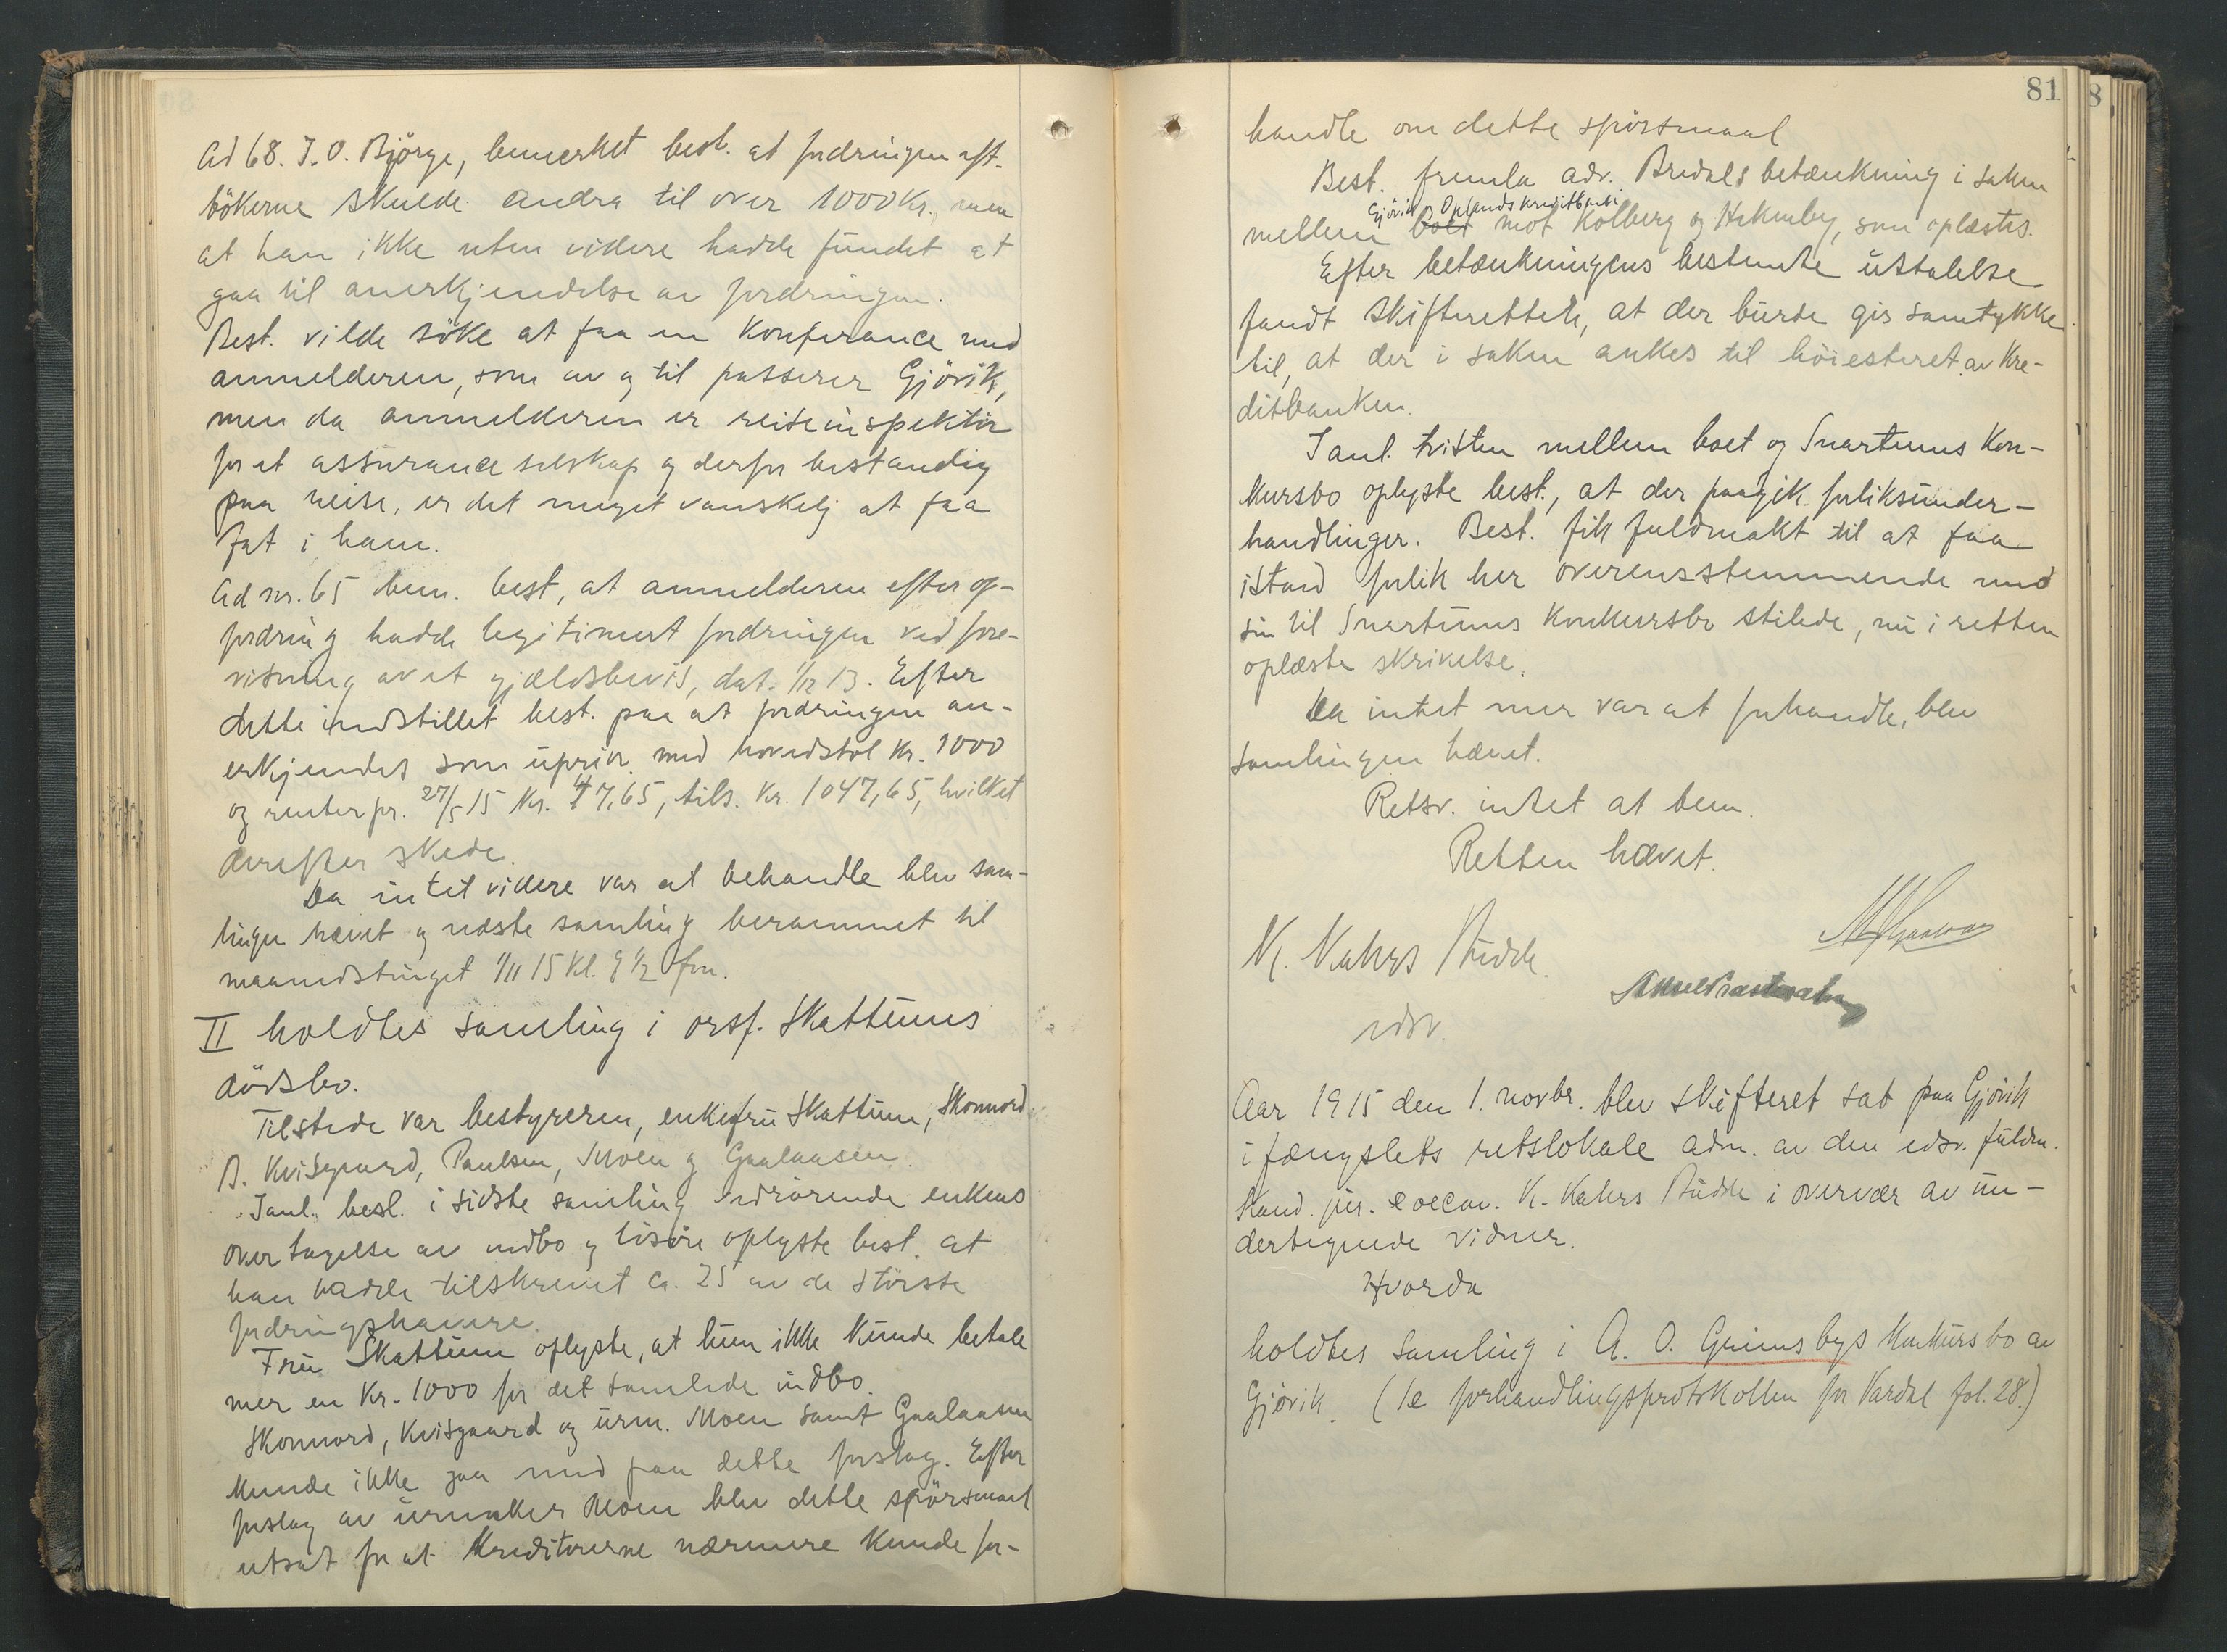 Ad 68. J. O. Bjørge, bemerket best. at fordringen eft.
bökerne skulde andra til over 1000 Kr., men
at han ikke uten videre hadde fundet at
gaa til anerkjendelse av fordringen.
Best. vilde söke at faa en Konferance med
anmelderen, som av og til passerer Gjövik,
men da anmelderen er reiseinspektör
for et assurance selskap og derfor bestandig
paa reise, er det meget vanskelig at faa
fat i ham.
Ad nr. 65 bem. best, at anmelderen efter op-
fordring hadde legitimert fordringen ved fore-
visning av et gjældsbevis, dat. 1/12 13. Efter
dette indstillet best. paa at fordringen an-
erkjendes som upriv. med hovedstol Kr. 1000
og renter pr. 27/5 15 Kr. 47,65, tils. Kr. 1047,65, hvilket
derefter skede.
Da intet videre var at behandle blev sam-
lingen hævet og næste samling berammet til
maanedstinget 1/11 15 Kl. 9 1/2 fm.
II holdtes samling i orsf. Skattums
dödsbo.
Tilstede var bestyreren, enkefru Skattum, Skonnord
B. Kvisgaard, Paulsen, Moen og Gaalaasen.
I anl. besl. i sidste samling vedrörende enkens
overtagelse av indbo og lösöre oplyste best. at
han hadde tilskrevet ca. 25 av de störste
fordringshavere.
Fru Skattum oplyste, at hun ikke Kunde betale
mer en Kr. 1000 for det samlede indbo.
Skonnord, Kvisgaard og urm. Moen samt Gaalaasen
Kunde ikke gaa med paa dette forslag. Efter
forslag av urmaker Moen blev dette spörsmaal
utsat for at Kreditorerne nærmere Kunde for-
81
8
handle om dette spörsmaal
Best. fremla adv. Bredals betænkning i saken
Gjövik og Oplands Kreditbank
mellem boet mot Kolberg og Hekneby, som oplæstes.
Efter betænkningens bestemte uttalelse
fandt skifteretten, at der burde gis samtykke
til, at der i saken ankes til höiesteret av Kre-
ditbanken.
I anl. tvisten mellem boet og Svartums Kon-
kursbo oplyste best., at der paagik forliksunder-
handlinger. Best. fik fuldmakt til at faa
istand forlik her overensstemmende med
sin til Svartums Konkursbo stilede, nu i retten
oplæste skrivelse.
Da intet mer var at forhandle, blev
samlingen hævet.
Retsv. intet at bem.
Retten hævet.
K. Kahrs Budde.
edsv.
Aar 1915 den 1. novbr. blev skifteret sat paa Gjövik
i fængslets retslokale adm. av den edsv. fuldm.
Kand. jur. & oecon. K. Kahrs Budde i overvær av un-
dertegnede vidner.
Hvorda
holdtes samling i A. O. Grimsbys Konkursbo av
Gjövik. (se forhandlingsprotokollen for Vardal fol. 28.)